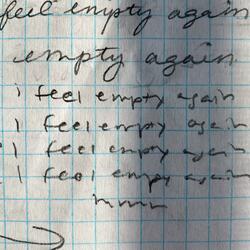 feel empty again
empty again
i feel empty again
I feel empty again
I feel empty again
I feel empty again